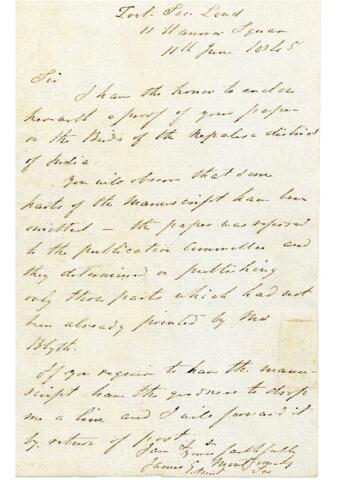 Zool. Soc. Lond
11 Hanover Square
11th June 1845
Sir
I have the honor to enclose
herewith a proof of your paper
on the Birds of the Nepalese district
of India.
You will observe that some
parts of the Manuscript have been
omitted — the paper was referred
to the publication Committee and
they determined on publishing
only those parts which had not
been already printed by Mr
Blyth.
If you require to have the manu-
script have the goodness to drop
me a line and I will forward it
by return of post
I am Sir Yours faithfully
James